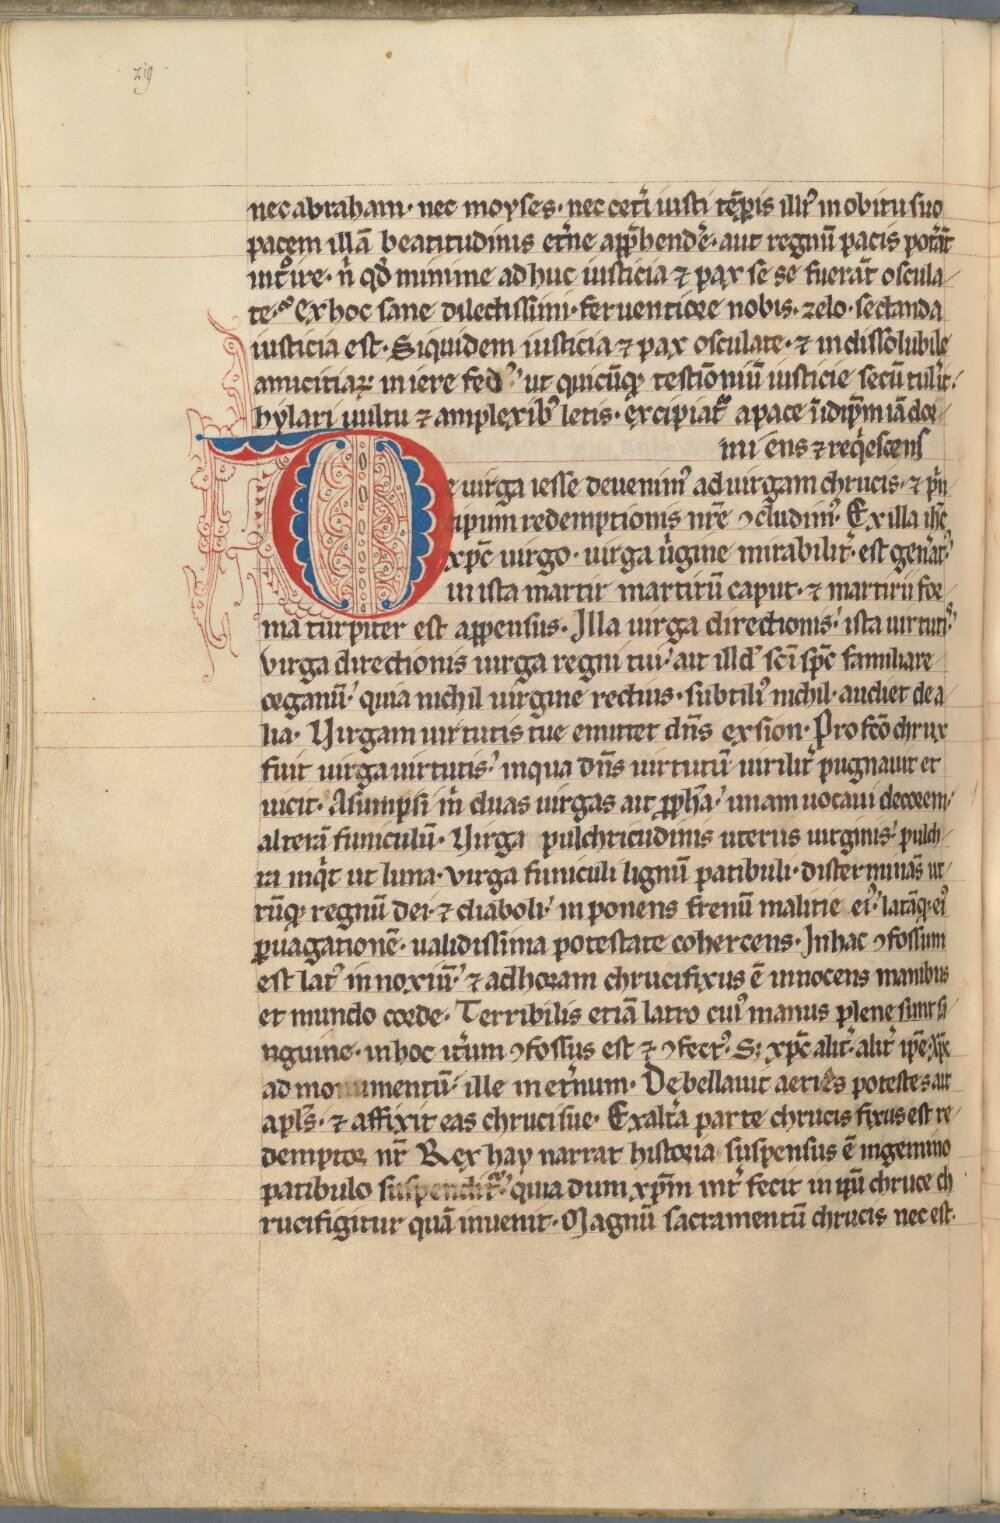 219
nec abraham· nec moyses· nec cet̃i iusti tẽp̱is illi᷒ in obitu suo
pacem illã beatitudinis et̃ne app̱hendẽ· aut regnũ pacis pot̃ãt
int͛oire· ñ qd̃ minime ad huc iusticia ⁊ pax se se fuerãt oscula-
te· Ex hoc sane dilectissimi· feruentiore nobis· zelo· sectanda
iusticia est· Siquidem iusticia ⁊ pax osculate· ⁊ indissolubile
amicitiaꝝ in iere fed᷒ ut quicũqꝫ testiõniũ iusticie secũ tulit̃
hylari uultu ⁊ amplexibꝰ letis· excipiat᷑ a pace ĩ idip̃m iã dor-
mi ens ⁊ req̃escens
De uirga iesse deuenimꝰ ad uirgam chrucis· ⁊ p̃n
cipium redemptionis nr̃e ꝯcludimꝰ· Ex illa ihc̃
xp̃c uirgo· uirga ũgine mirabilit̃· est gen̾at᷒
in ista martir martirũ caput· ⁊ martirii for-
ma turpiter est appensus· Illa uirga directionis ista uirtutis
virga directionis uirga regni tui ait illd̃ sc̃i sp̃c familiare
organũ quia nichil uirgine rectius· subtiliꝰ nichil· audiet de a
lia· Uirgam uirtutis tue emittet dñs ex sion· Profc̃o chrux
fuit uirga uirtutis inqua dñs uirtutũ uirilit̃ pugnauit et
uicit· Asumpsi m̃ duas uirgas ait p̱ph̃a unam uocaui decorem
alterã funiculũ· Uirga pulchritudinis uterus uirginis pulch-
ra inq̃t ut luna· virga funiculi lignũ patibuli· disterminãs ut-
rũqꝫ regnũ dei· ⁊ diaboli in ponens frenũ malitie eiꝰ latãqꝫ eiꝰ
ꝑuagationẽ· ualidissima potestate cohercens· In hac ꝯfossum
est latꝰ innoxiũ ⁊ ad horam chrucifixus ẽ innocens manibus
et mundo corde· Terribilis etiã latro cuiꝰ manus plene sunt sã
nguine· in hoc it̃um ꝯfossus est ⁊ ꝯfectꝰ· Sꝫ xp̃c alit̃· alit̃ ip̃e· xp̃c
ad monumentũ ille inet̃num· Debellauit aeries potestes ait
apl̃s· ⁊ affixit eas chruci sue· Ex alt̃a parte chrucis fixus est re-
demptor nr̃ Rex hay narrat historia suspensus ẽ in gemino
patibulo suspendit᷑ quia dum xp̃m int̃fecit in ip̃ũ chruce ch
rucifigitur quã inuenit· Magnũ sacramentũ chrucis nec est·